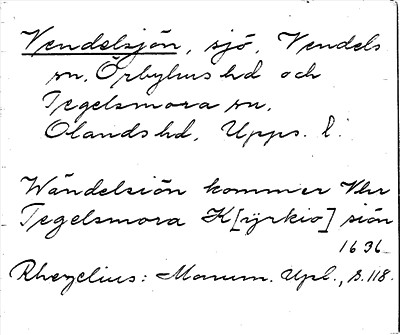 Vendelsjön, sjö, Vendels
sn, Örbyhus hd och
Tegelsmora sn,
Olands hd, Upps. l.
Wändelsiön kommer Vhr
Tegelsmora K[yrkio] siön
1636
Rhezelius: Monum. Upl., s. 118.